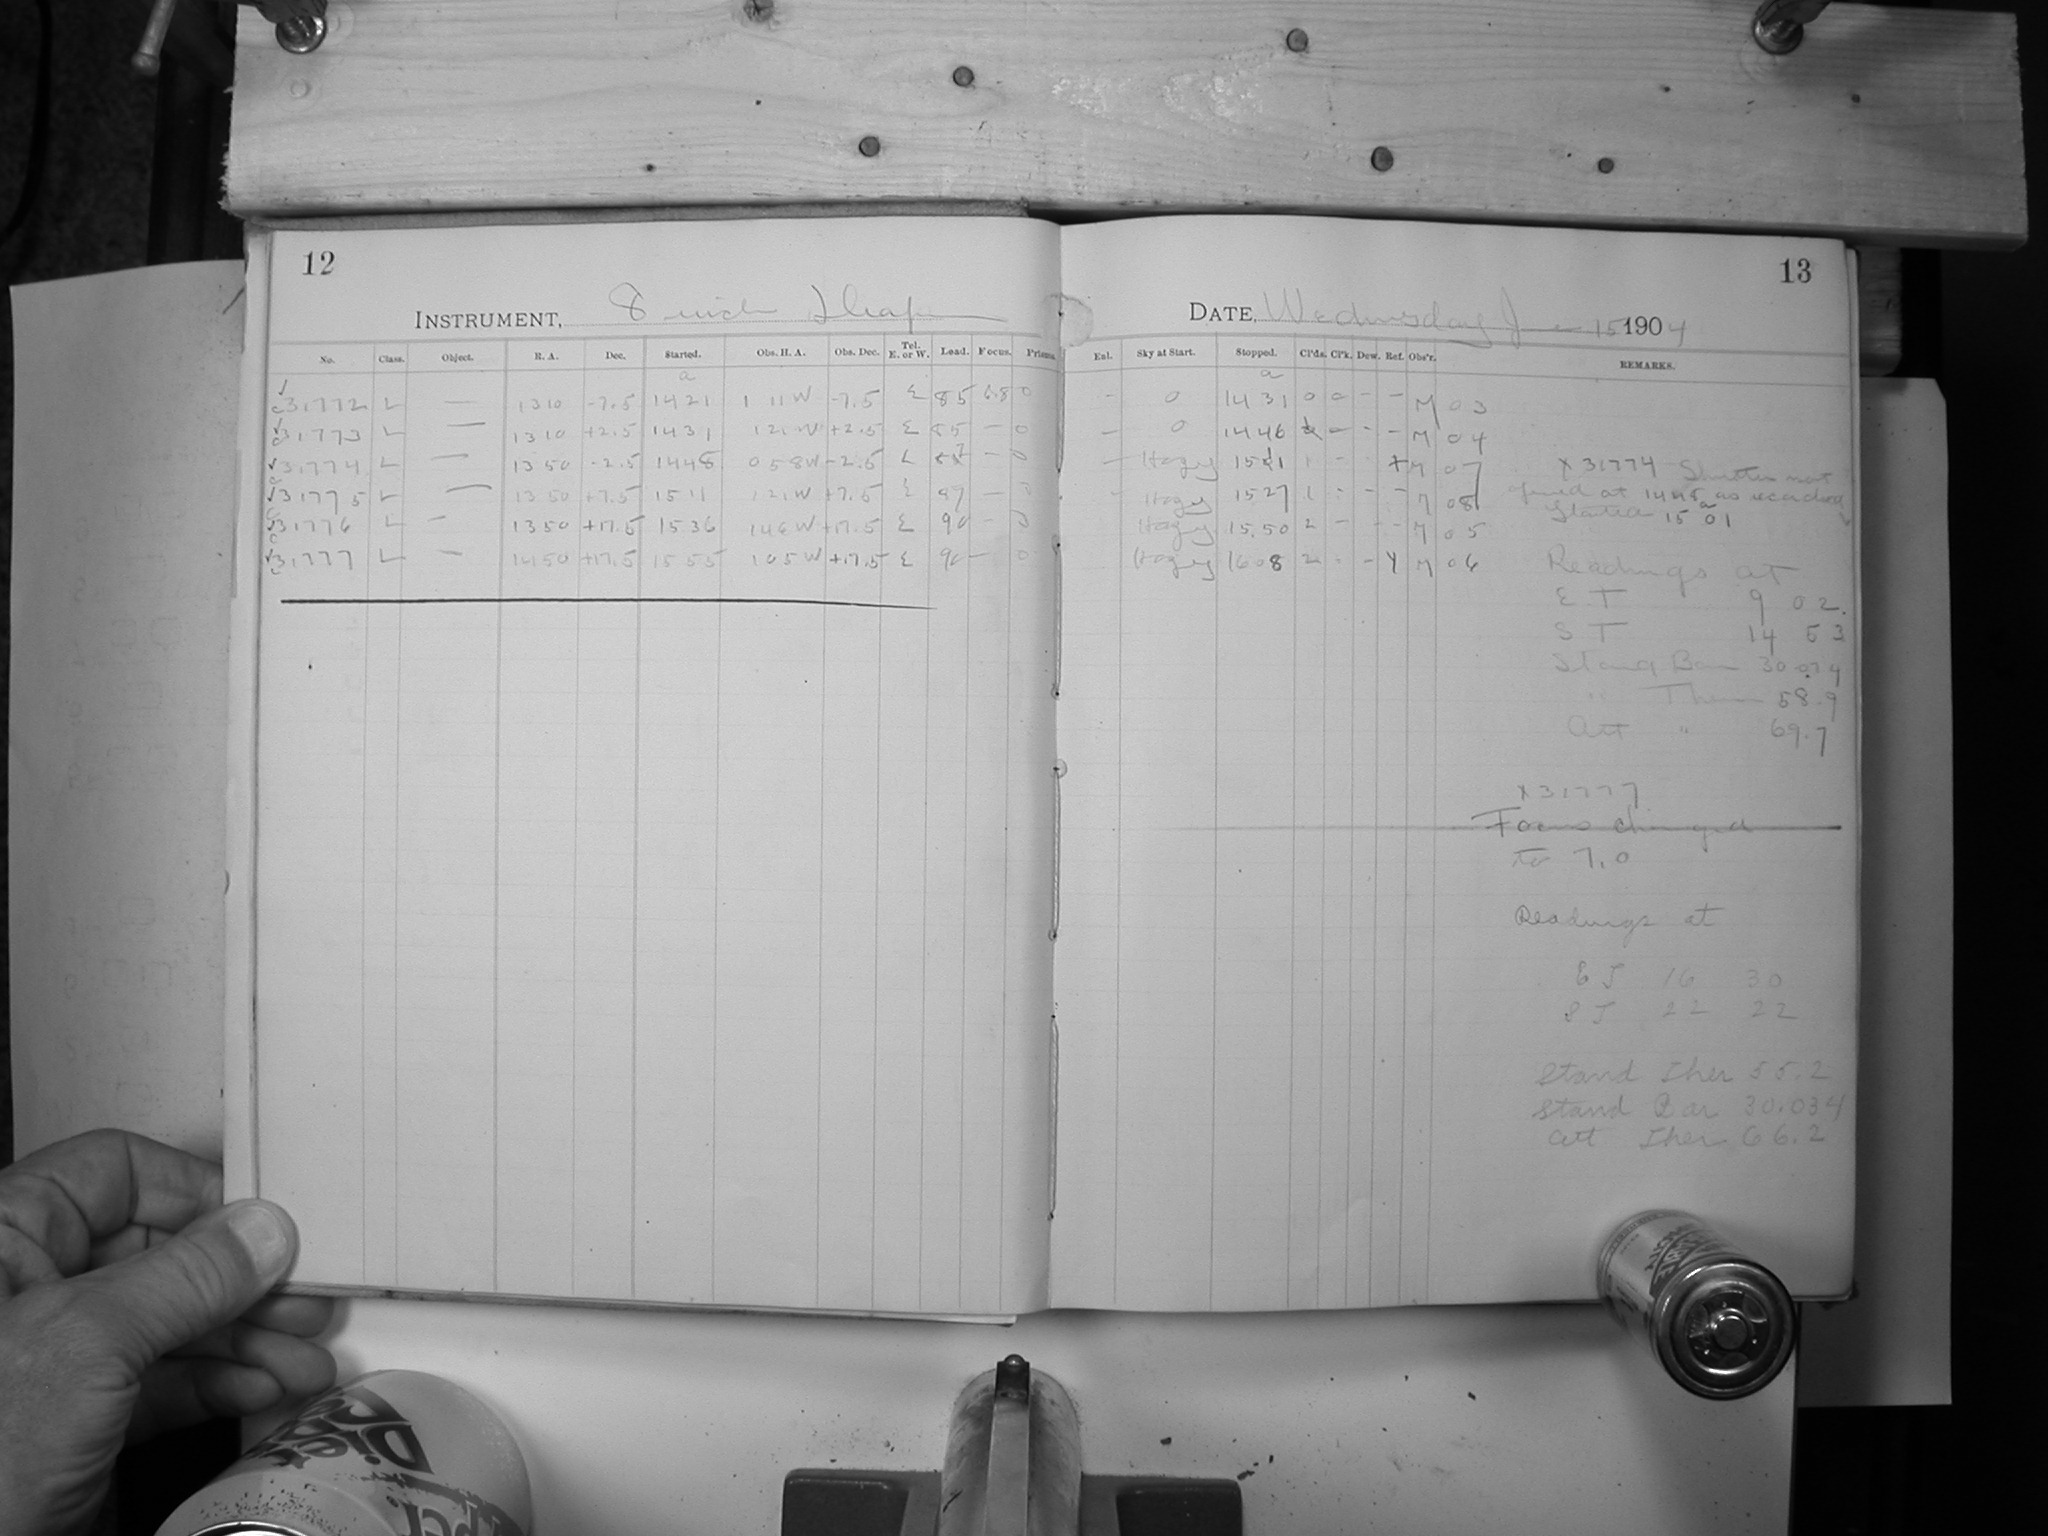 12
13
INSTRUMENT, 8 inch Draper
DATE, Wednesday June 15 1904
No. Class. Object. R. A. Dec. Started. Obs. H. A. Obs. Dec. Tel. E. or W. Lead. Focus. Prisms Enl. Sky at Start. Stopped. Cl'ds. Cl'k. Dew. Ref. Obs'r. REMARKS.
31772 L — 13 10 -7.5 14 21 1 11 W -7.5 E 85 6.8 0 - 0 14 31 0 0 - - M 03
31773 L — 13 10 +2.5 14 31 1 21 W +2.5 E 85 — 0 — 0 14 46 — - - M 04
31774 L — 13 50 -2.5 14 48 0 58 W -2.5 — 0 — Hazy M 07
31775 L — 13 50 +7.5 15 11 1 21 W +7.5 E 87 — Hazy 15 27 M 08
31776 L — 13 50 +17.5 15 36 1 46 W +17.5 E 90 — Hazy 15.50 2 — - - M 05
31777 L — 14 50 +17.5 15 55 1 05 W +17.5 E 90 — 0 Hazy 16 08 2 M 06
x 31774 Shutter not
opened at as recorded
Started 15 01
Readings at
E T 9 02
S T 14 53
Stand Bar 30.074
" Ther 58.9
Att " 69.7
x 31777
Focus changed
to 7.0
Readings at
E T 16 30
S T 22 22
Stand Ther 55.2
Stand Bar 30.034
Att Ther 66.2
Diet